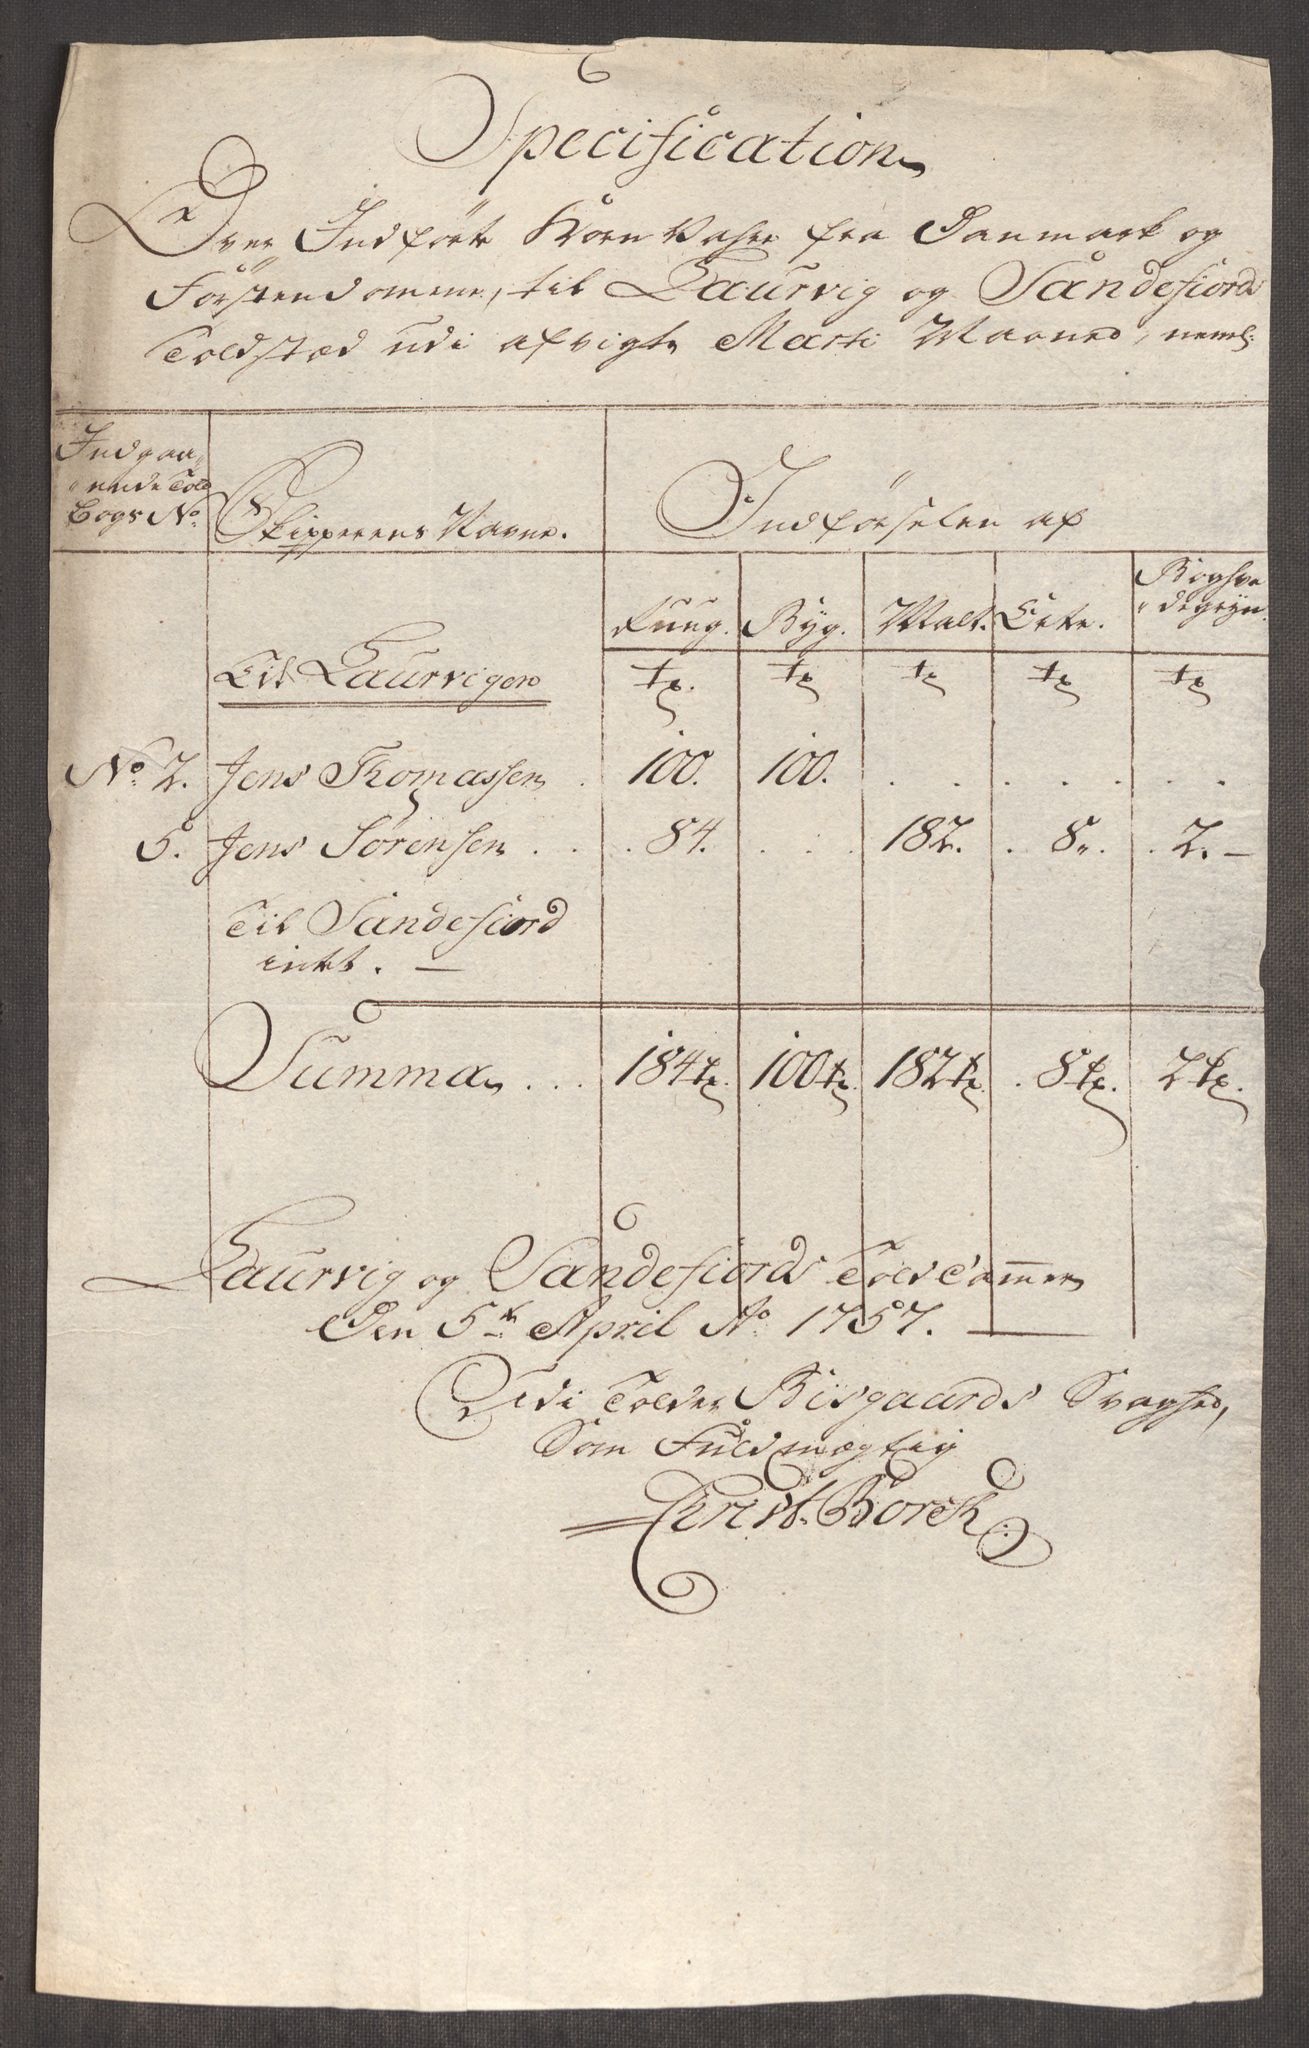 Specification
Over Indførte Korn Vahre fra Danmark og
Førstendomene, til Laurvig og Sandefiords
Toldsted udi afvigte Marti Maaned, neml:
Indgaa-
ende Told
Bogs No.
Skipperens Navne.
Indførselen af
Ruug. Byg. Malt. Erter. Boghve-
degryn.
Til Laurvigen tr. tr tr tr tr
No. 2. Jens Thomassen . 100. 100. . . . . . .
5. Jens Sørensen . . . 84. . . 182. . 8. . 2. -
Til Sandefiord
intet. -
Summa . . . 184 tr. 100 tr. 182 tr. . 8 tr. 2 tr.
Laurvig og Sandefiords Told Cammer
Den 5te April Ao. 1757.
Udi Tolder Bisgaards Svaghed,
Som Fuldmægtig
Christ. Borch